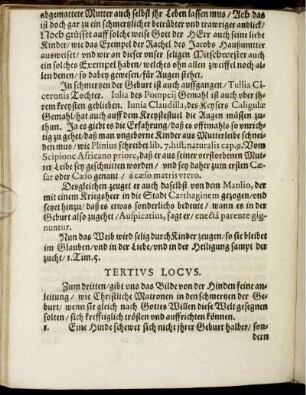 abgemattete Mutter auch selbst jhr Leben lassen mus / Ach das
ist doch gar zu ein schmertzlicher betrübter vnd trawriger anblick /
Noch grüsset auff solche weise Gott der HErr auch seine liebe
Kinder / wie das Exempel der Rachel des Jacobs Hausmutter
ausweiset / vnd wir an dieser vnser seligen Mitschwester auch
ein solches Exempel haben / welches ohn allen zweiffel noch al-
len denen / so dabey gewesen / für Augen stehet.
In schmertzen der Geburt ist auch auffgangen / Tullia Ci-
ceronis Tochter. Iulia des Pompeij Gemahl ist auch vber jh-
rem kreysten geblieben. Iunia Claudilla, des Keysers Caligulæ
Gemahl / hat auch auff dem Kreystestuel die Augen müssen zu-
thun. Ja es giebt es die Erfahrung / daß es offtmahls so vnrich-
tig zu gehet / daß man vngeborne Kinder aus Mutterleibe schnei-
den mus / wie Plinius schreibet lib. 7. hist. naturalis cap. 9. Vom
Scipione Africano priore, daß er aus seiner verstorbenen Mut-
ter Leibe sey geschnitten worden / vnd sey daher zum ersten Cæ-
sar oder Cæso genant / à cæso matris vtero.
Desgleichen zeuget er auch daselbst von dem Manlio, der
mit einem Kriegsheer in die Stadt Carthaginem gezogen / vnd
setzet hinzu / daß es etwas sonderlichs bedeute / wann es in der
Geburt also zugehet / Auspicatius, sagt er / enectâ parente gig-
nuntur.
Nun das Weib wird selig durch Kinder zeugen / so sie bleibet
im Glauben / vnd in der Liebe / vnd in der Heiligung sampt der
zucht / 1. Tim.
TERTIVS LOCVS.
Zum dritten / gibt vns das Bilde von der Hinden feine an-
leitung / wie Christliche Matronen in den schmertzen der Ge-
burt / wenn sie gleich nach Gottes Willen diese Welt gesegnen
solten / sich krefftiglich trösten vnd auffrichten können.
1. Eine Hinde schewet sich nicht jhrer Geburt halber / son-
dern